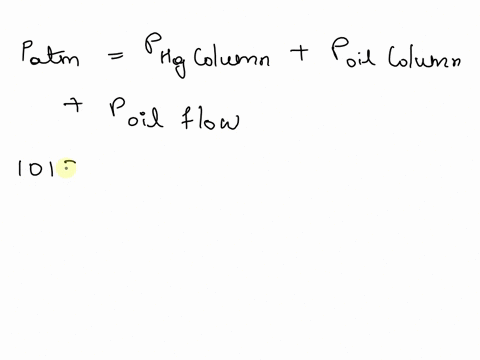 Patm = PHg Column + Poil Column
+ Poil flow
101